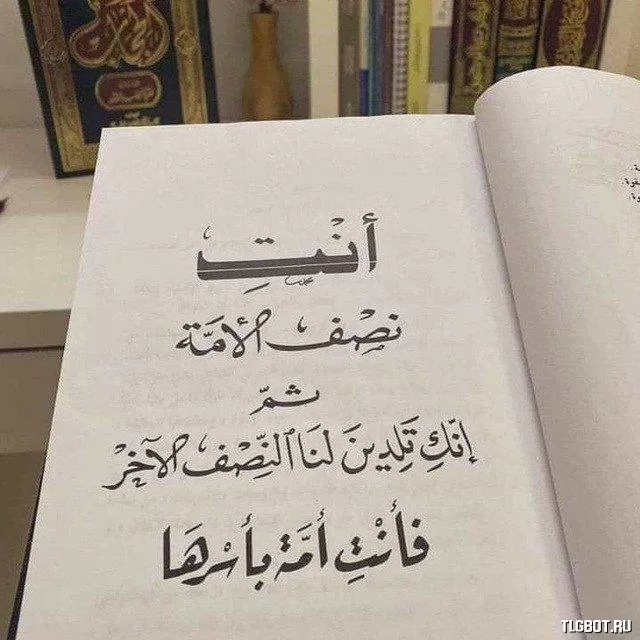 أنْتِ
نصِْف الأمَّة
ثمّ
إنّكِ تَلِدِينَ لنَا النِّصْف الآخِرْ
فأنْتِ أمَّة بأسْرهَا
TLGBOT.RU